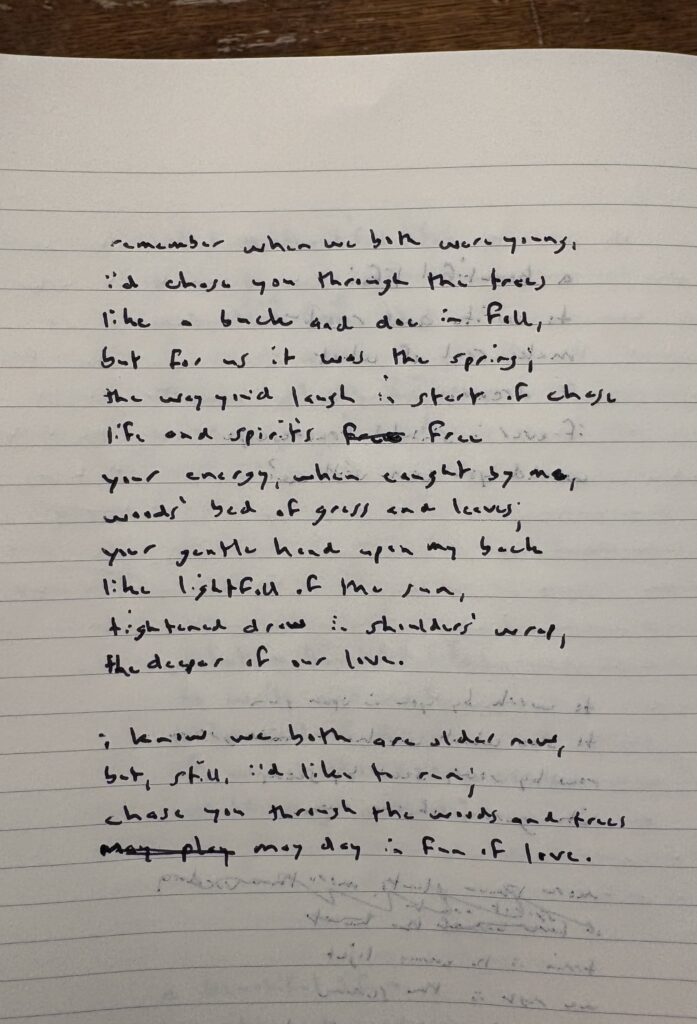 remember when we both were young,
i'd chase you through the trees
like a buck and doe in fall,
but for us it was the spring;
the way you'd laugh in start of chase
life and spirits free
your energy, when caught by me,
woods' bed of grass and leaves;
your gentle hand upon my back
like lightfall of the sun,
tightened draw in shoulders' wrap,
the deeper of our love.
i know we both are older now,
but, still, i'd like to run;
chase you through the woods and trees
may play may day in fun of love.